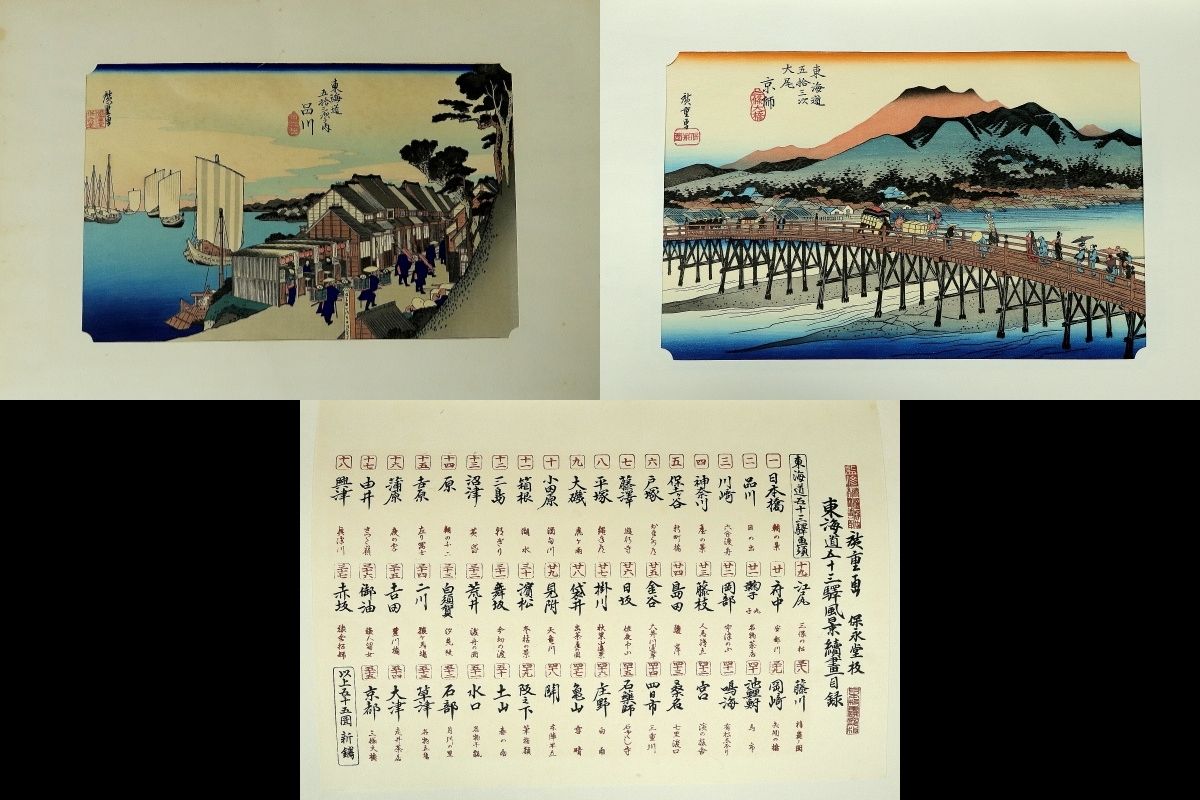 東海道
五拾三次之内
品川
廣重画
東海道
五拾三次
大尾
京師
三條大橋
廣重画
廣重画 保永堂板
東海道五十三驛風景續畫目録
東海道五十三驛画項
一 日本橋 朝の景
二 品川 日の出
三 川崎 六合渡舟
四 神奈川 臺の景
五 保土ヶ谷 新町橋
六 戸塚
七 藤澤 遊行寺
八 平塚 縄手道
九 大磯 虎ヶ雨
十 小田原 酒匂川
十一 箱根 湖水
十二 三島 朝ぎり
十三 沼津 黄昏
十四 原 朝の不二
十五 吉原 左り富士
十六 蒲原 夜の雪
十七 由井
十八 興津 興津川
十九 江尻 三保の松
廿 府中 安部川
廿一 鞠子 名物茶店
廿二 岡部 宇津の山
廿三 藤枝 人馬継立
廿四 島田 駿岸
廿五 金谷 大井川遠岸
廿六 日坂 佐夜中山
廿七 掛川 秋葉山遠景
廿八 袋井 出茶屋圖
廿九 見附 天竜川
三十 濱松 冬枯の景
三十一 舞坂 今切の渡
三十二 荒井 渡舟の圖
三十三 白須賀 汐見坂
三十四 二川 猿ヶ馬場
三十五 吉田 豊川橋
三十六 御油 旅人留女
三十七 赤坂 旅舎招婦
三十八 藤川 棒鼻圖
三十九 岡崎 矢矧の橋
池鯉鮒 馬市
四十一 鳴海 有松志ぼり
宮 濱の旅舎
桑名 七里渡口
四日市 三重川
石藥師 石やくし寺
庄野 白雨
亀山 雪晴
四十八 関 本陣早立
四十九 阪之下 筆捨嶺
五十 土山 春の雨
水口 名物干瓢
石部 目川の里
草津 名物立場
大津 走井茶店
京都 三條大橋
以上五十五圖 新鐫